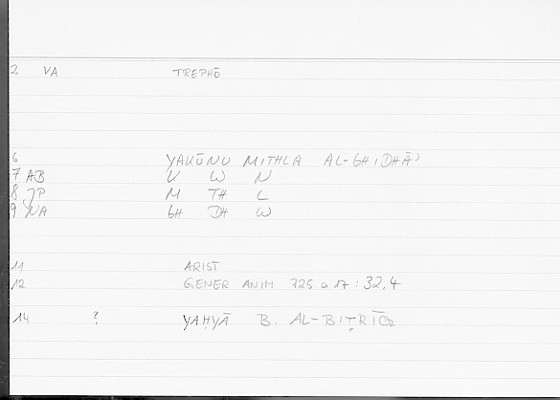 2 VA TREPHŌ
6 YAKŪNU MITHLA AL-GHIDHĀʾ
7 AB K W N
8 JP M TH L
9 NA GH DH W
11 ARIST
12 GENER ANIM 725 a 17 : 32,4
14 ? YAḤYĀ B. AL-BIṬRĪQ